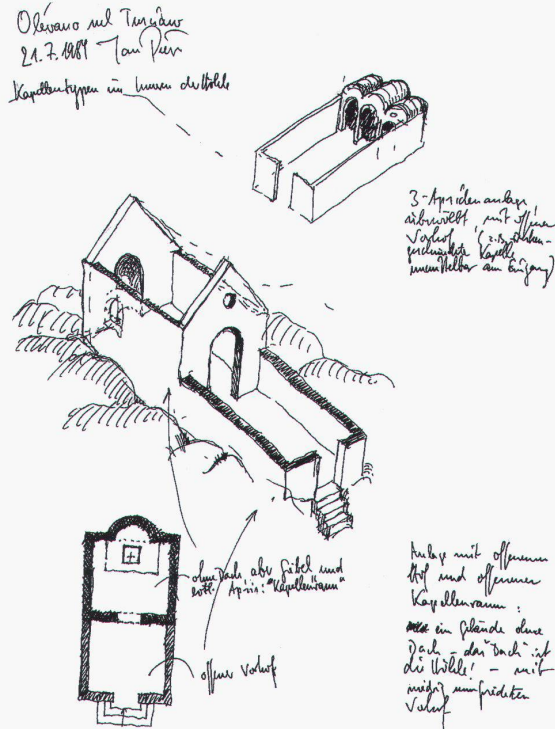 Olévano sul Tusciano
21.7.1989 Jan Pieper
Kapellentypen im Innern der Höhle
3-Apsidenanlage
überwölbt mit offenem
Vorhof (z.B.
geschmückte Kapelle
unmittelbar am Eingang)
ohne Dach aber Giebel und
Apsis: "Kapellenraum"
offener Vorhof
Anlage mit offenem
Hof und offenem
Kapellenraum:
ein Gebäude ohne
Dach - das Dach ist
die Höhle! - mit
niedrig umfriedeten
Vorhof